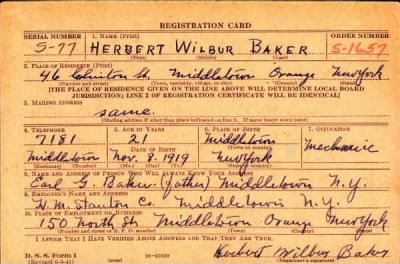 REGISTRATION CARD
SERIAL NUMBER 1. NAME (Print) ORDER NUMBER
S-77 HERBERT WILBUR BAKER S-1657
(First) (Middle) (Last)
2. PLACE OF RESIDENCE (Print)
46 St., Middletown Orange New York
(Number and street) (Town, township, village, or city) (County) (State)
[THE PLACE OF RESIDENCE GIVEN ON THE LINE ABOVE WILL DETERMINE LOCAL BOARD
JURISDICTION; LINE 2 OF REGISTRATION CERTIFICATE WILL BE IDENTICAL]
3. MAILING ADDRESS
same.
[Mailing address if other than place indicated on line 2. If same insert word same]
4. TELEPHONE 5. AGE IN YEARS 6. PLACE OF BIRTH 7. OCCUPATION
7181 21 Middletown Mechanic
DATE OF BIRTH
Middletown Nov. 8, 1919 New York
(Exchange) (Number) (Mo.) (Day) (Yr.) (State or country)
8. NAME AND ADDRESS OF PERSON WHO WILL ALWAYS KNOW YOUR ADDRESS
Earl Baker (father) Middletown N.Y.
9. EMPLOYER'S NAME AND ADDRESS
H. M. Stanton Co. Middletown N.Y.
10. PLACE OF EMPLOYMENT OR BUSINESS
150 North St. Middletown Orange New York
(Number and street or R. F. D. number) (Town) (County) (State)
I AFFIRM THAT I HAVE VERIFIED ABOVE ANSWERS AND THAT THEY ARE TRUE.
D. S. S. Form 1
(Revised 6-9-41) Herbert Wilbur Baker